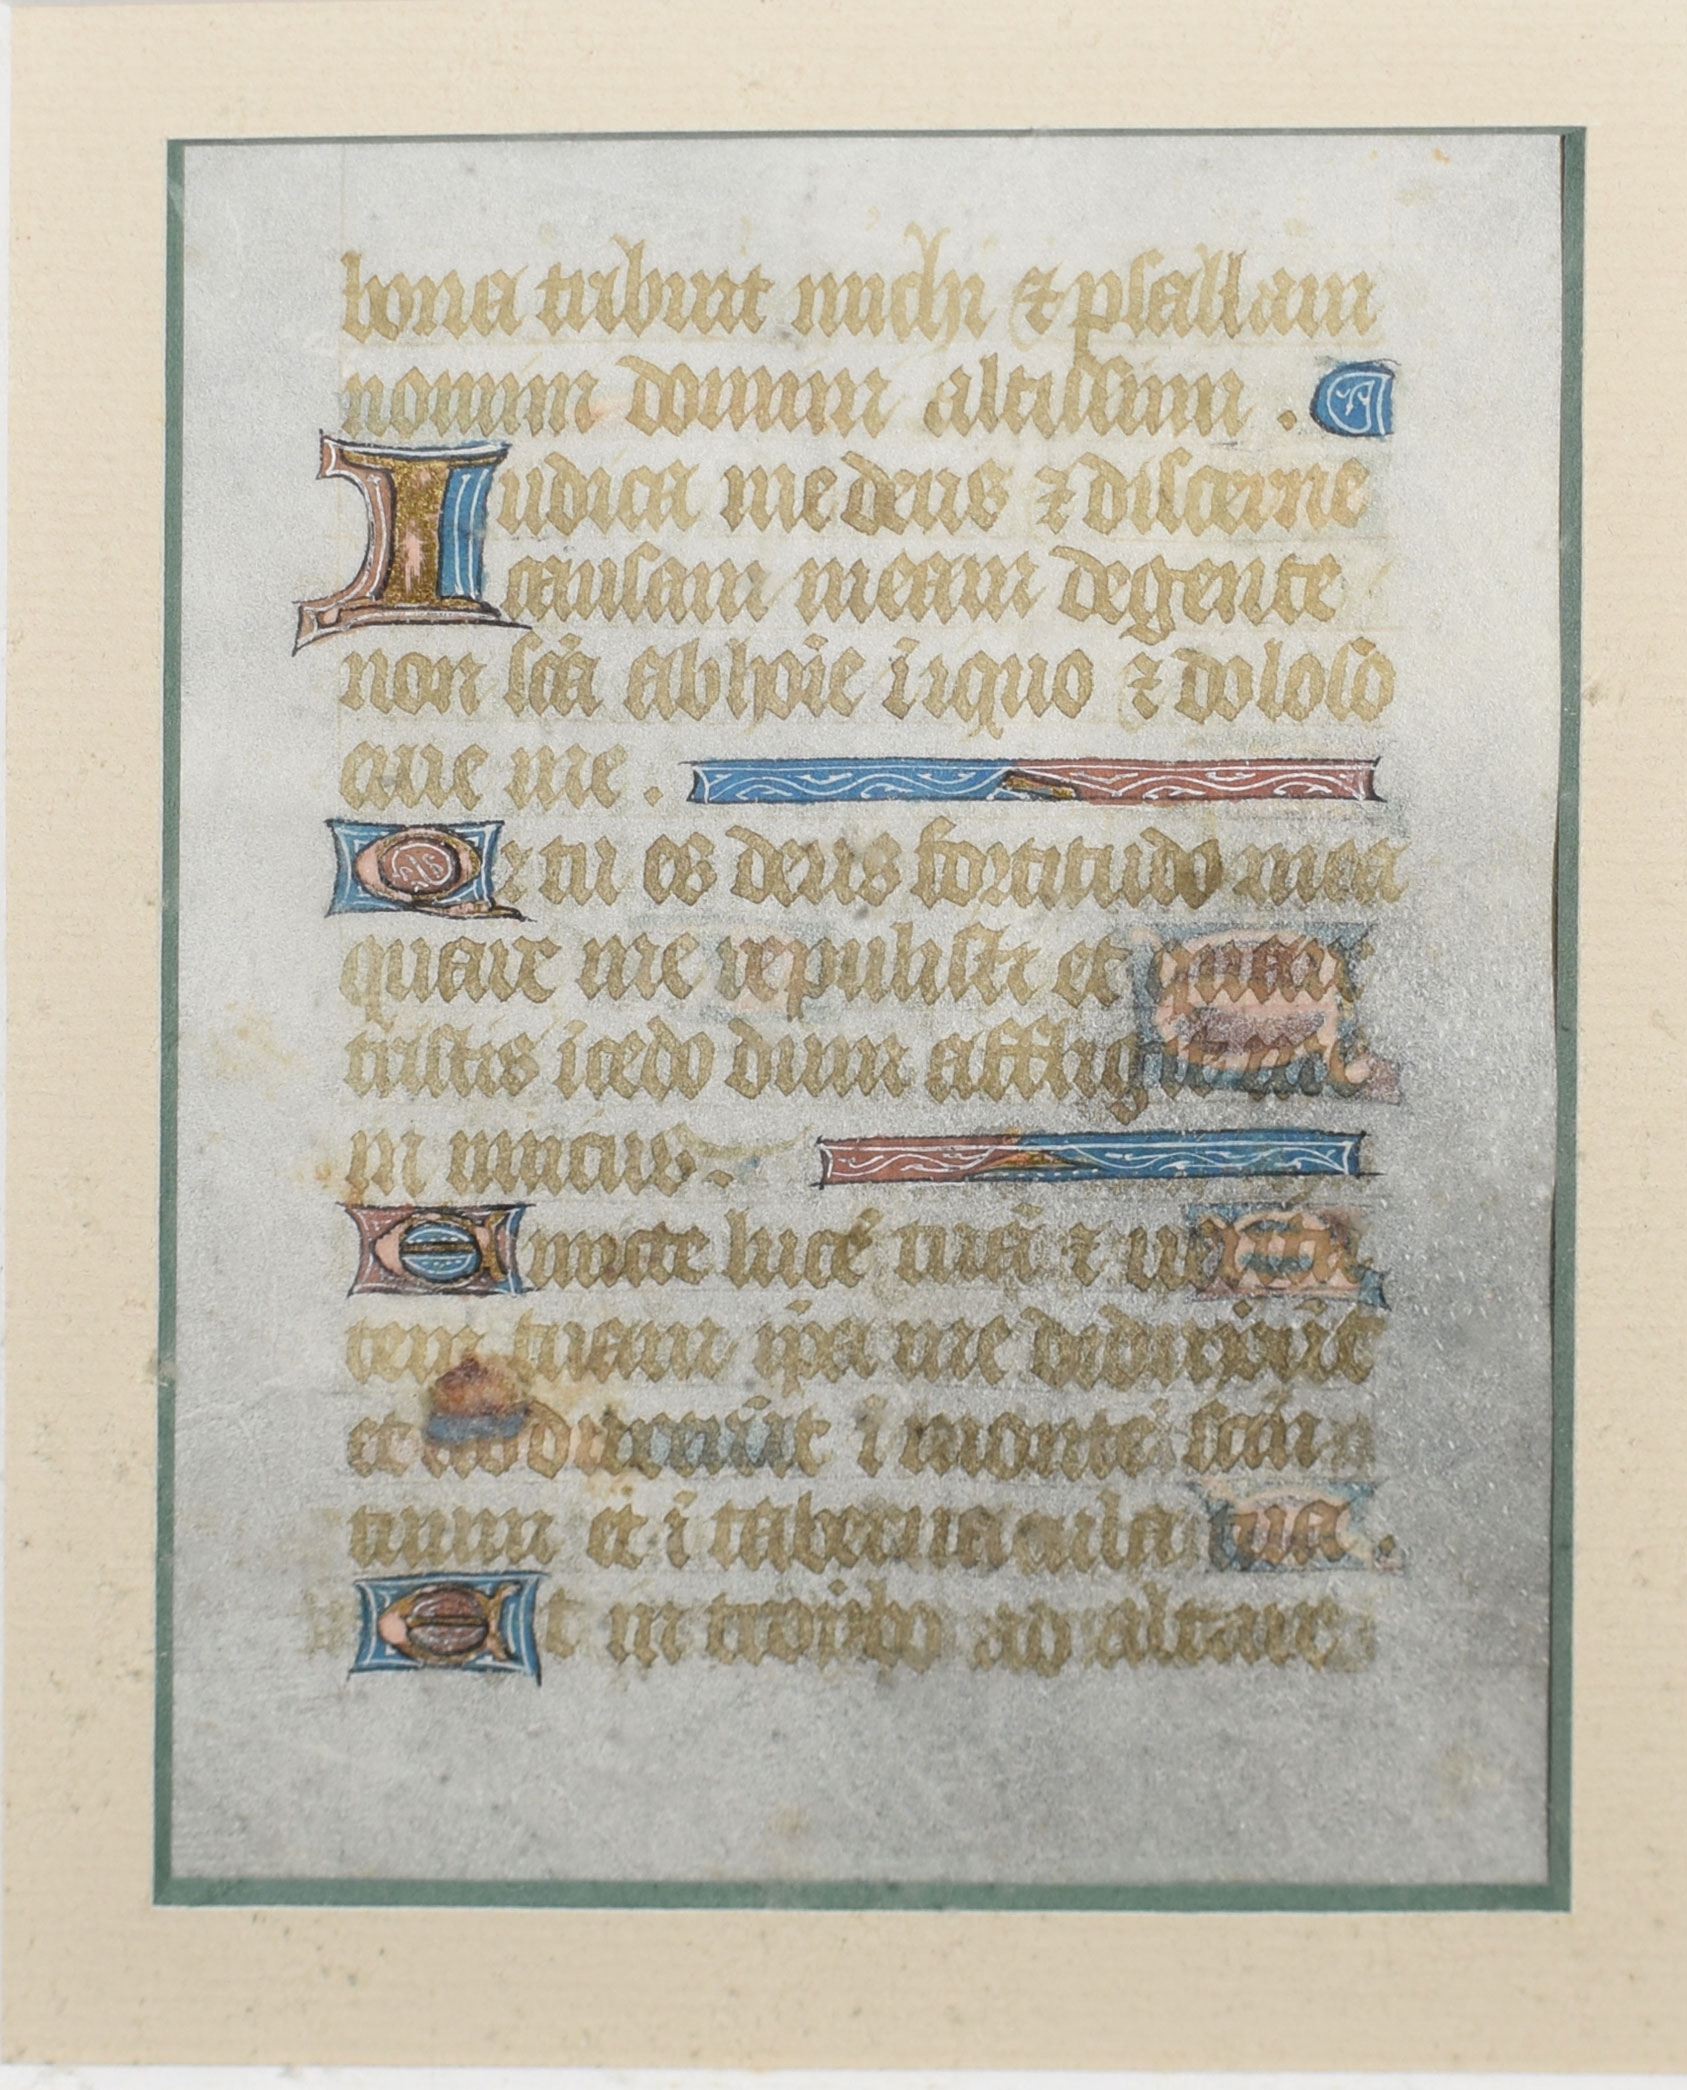 bona tribuit michi & psallam
nomini domini altissimi .
Iudica me deus ⁊ discerne
causam meam degente
non scā abhoīe iīquo ⁊ doloso
erue me .
Qr tu es deus fortitudo mea
quare me repulisti et quare
tristis īcedo dum affligit me
in imicus .
Emitte lucē tuā ⁊ uerita
tem tuam ip̄a me deduxerūt
et adduxerūt ī montē sctm̄
tuum et ī tabernacula tua .
Et in troibo ad altare